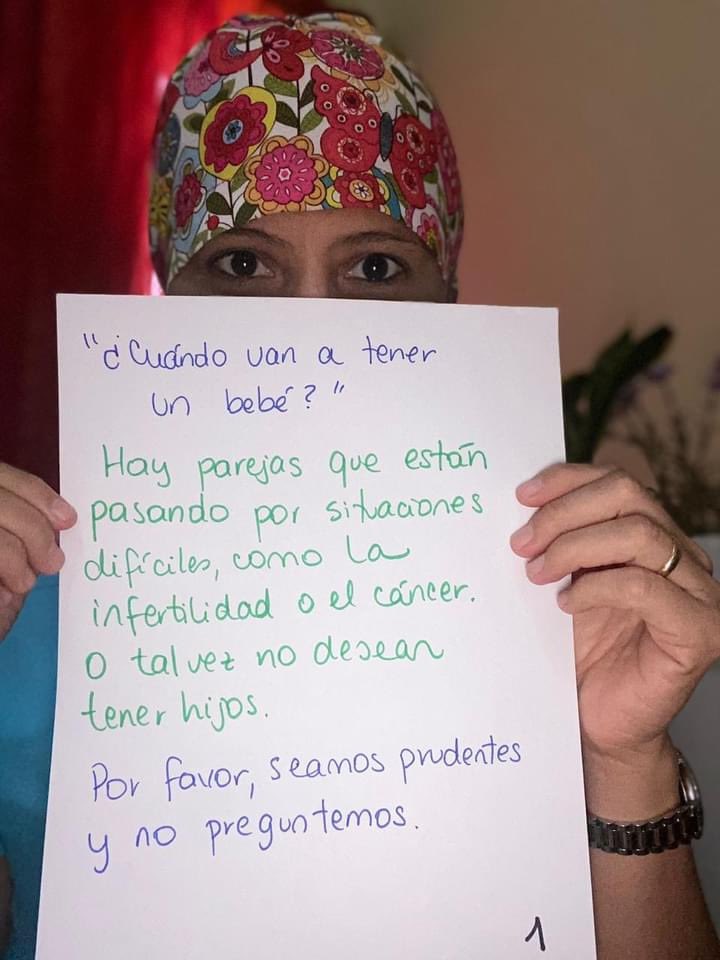 "¿Cuándo van a tener
un bebé?"
Hay parejas que están
pasando por situaciones
difíciles, como la
infertilidad o el cáncer.
O tal vez no desean
tener hijos.
Por favor, seamos prudentes
y no preguntemos.
1